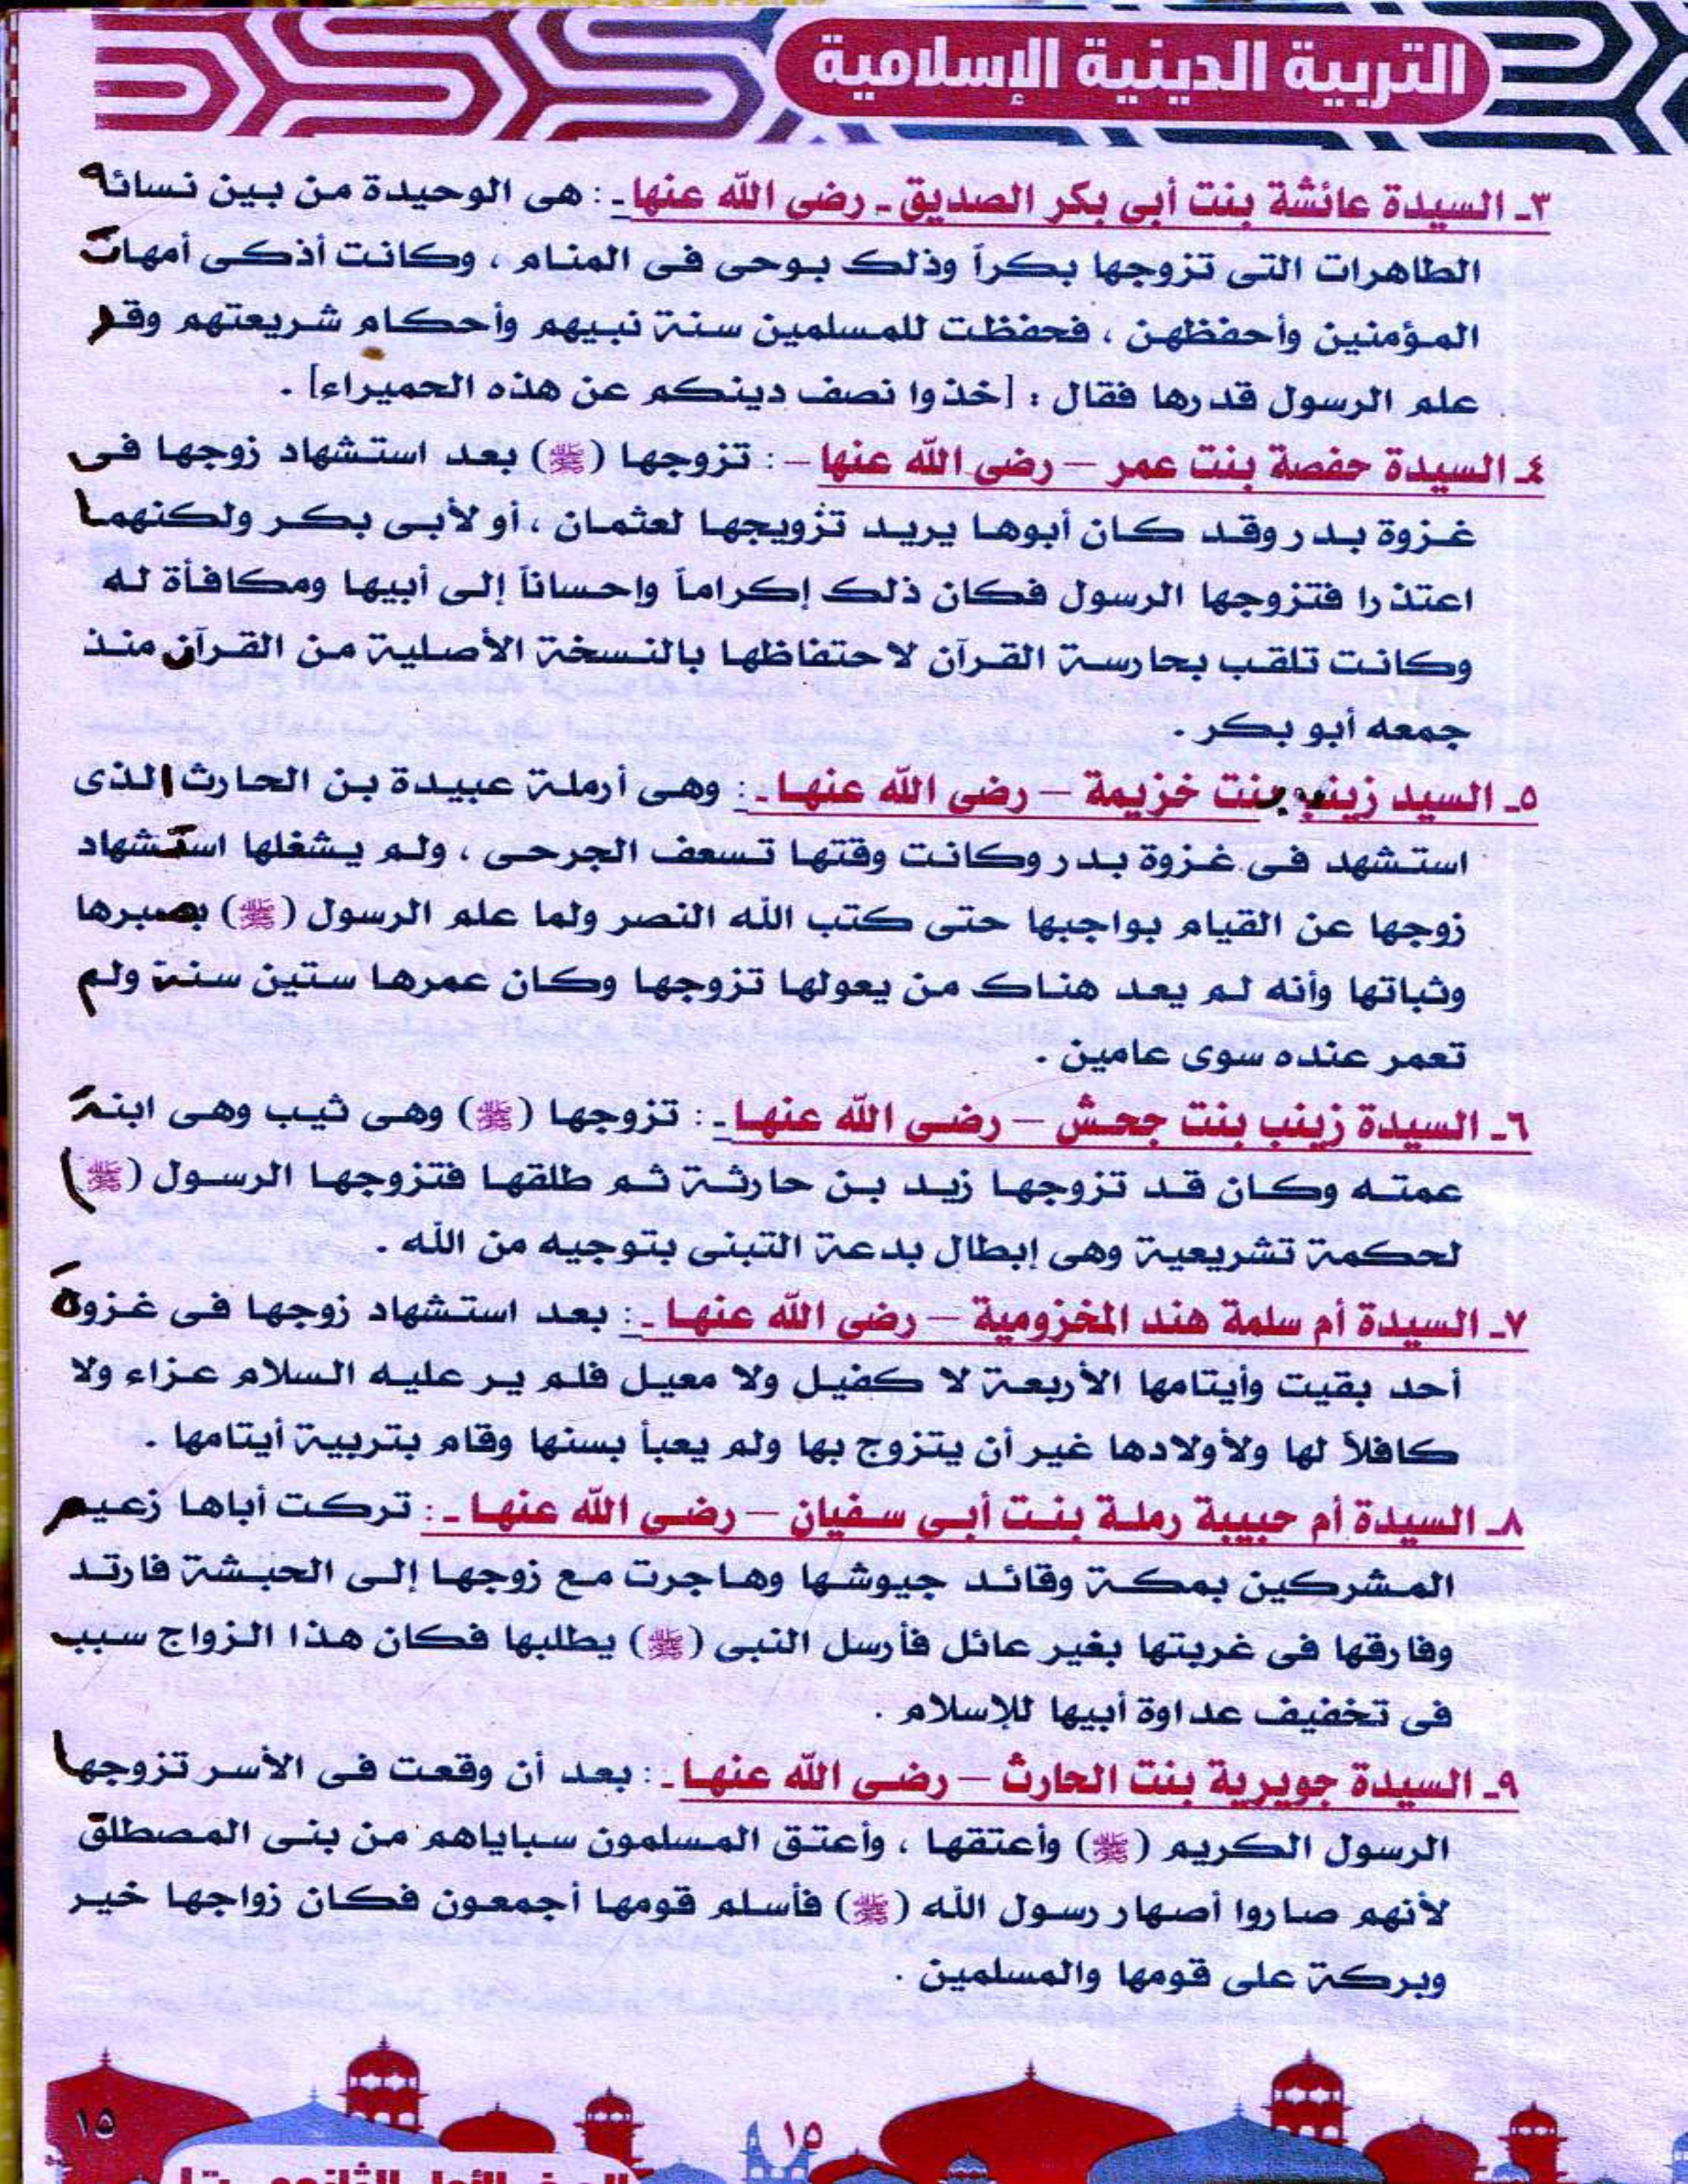 التربية الدينية الإسلامية
٣ـ السيدة عائشة بنت أبى بكر الصديق ـ رضى الله عنها ـ : هى الوحيدة من بين نسائه
الطاهرات التى تزوجها بكراً وذلك بوحى فى المنام ، وكانت أذكى أمهات
المؤمنين وأحفظهن ، فحفظت للمسلمين سنة نبيهم وأحكام شريعتهم وقد
علم الرسول قدرها فقال : [خذوا نصف دينكم عن هذه الحميراء] .
٤ـ السيدة حفصة بنت عمر – رضى الله عنها – : تزوجها (ﷺ) بعد استشهاد زوجها فى
غزوة بدر وقد كان أبوها يريد تزويجها لعثمان ، أو لأبى بكر ولكنهما
اعتذرا فتزوجها الرسول فكان ذلك إكراماً وإحساناً إلى أبيها ومكافأة له
وكانت تلقب بحارسة القرآن لاحتفاظها بالنسخة الأصلية من القرآن منذ
جمعه أبو بكر .
٥ـ السيد زينب بنت خزيمة – رضى الله عنها ـ : وهى أرملة عبيدة بن الحارث الذى
استشهد فى غزوة بدر وكانت وقتها تسعف الجرحى ، ولم يشغلها استشهاد
زوجها عن القيام بواجبها حتى كتب الله النصر ولما علم الرسول (ﷺ) بصبرها
وثباتها وأنه لم يعد هناك من يعولها تزوجها وكان عمرها ستين سنة ولم
تعمر عنده سوى عامين .
٦ـ السيدة زينب بنت جحش – رضى الله عنها ـ : تزوجها (ﷺ) وهى ثيب وهى ابنة
عمته وكان قد تزوجها زيد بن حارثة ثم طلقها فتزوجها الرسول (ﷺ)
لحكمة تشريعية وهى إبطال بدعة التبنى بتوجيه من الله .
٧ـ السيدة أم سلمة هند المخزومية – رضى الله عنها ـ : بعد استشهاد زوجها فى غزوة
أحد بقيت وأيتامها الأربعة لا كفيل ولا معيل فلم ير عليه السلام عزاء ولا
كافلاً لها ولأولادها غير أن يتزوج بها ولم يعبأ بسنها وقام بتربية أيتامها .
٨ـ السيدة أم حبيبة رملة بنت أبى سفيان – رضى الله عنها ـ : تركت أباها زعيم
المشركين بمكة وقائد جيوشها وهاجرت مع زوجها إلى الحبشة فارتد
وفارقها فى غربتها بغير عائل فأرسل النبى (ﷺ) يطلبها فكان هذا الزواج سبب
فى تخفيف عداوة أبيها للإسلام .
٩ـ السيدة جويرية بنت الحارث – رضى الله عنها ـ : بعد أن وقعت فى الأسر تزوجها
الرسول الكريم (ﷺ) وأعتقها ، وأعتق المسلمون سباياهم من بنى المصطلق
لأنهم صاروا أصهار رسول الله (ﷺ) فأسلم قومها أجمعون فكان زواجها خير
وبركة على قومها والمسلمين .
١٥
١٥